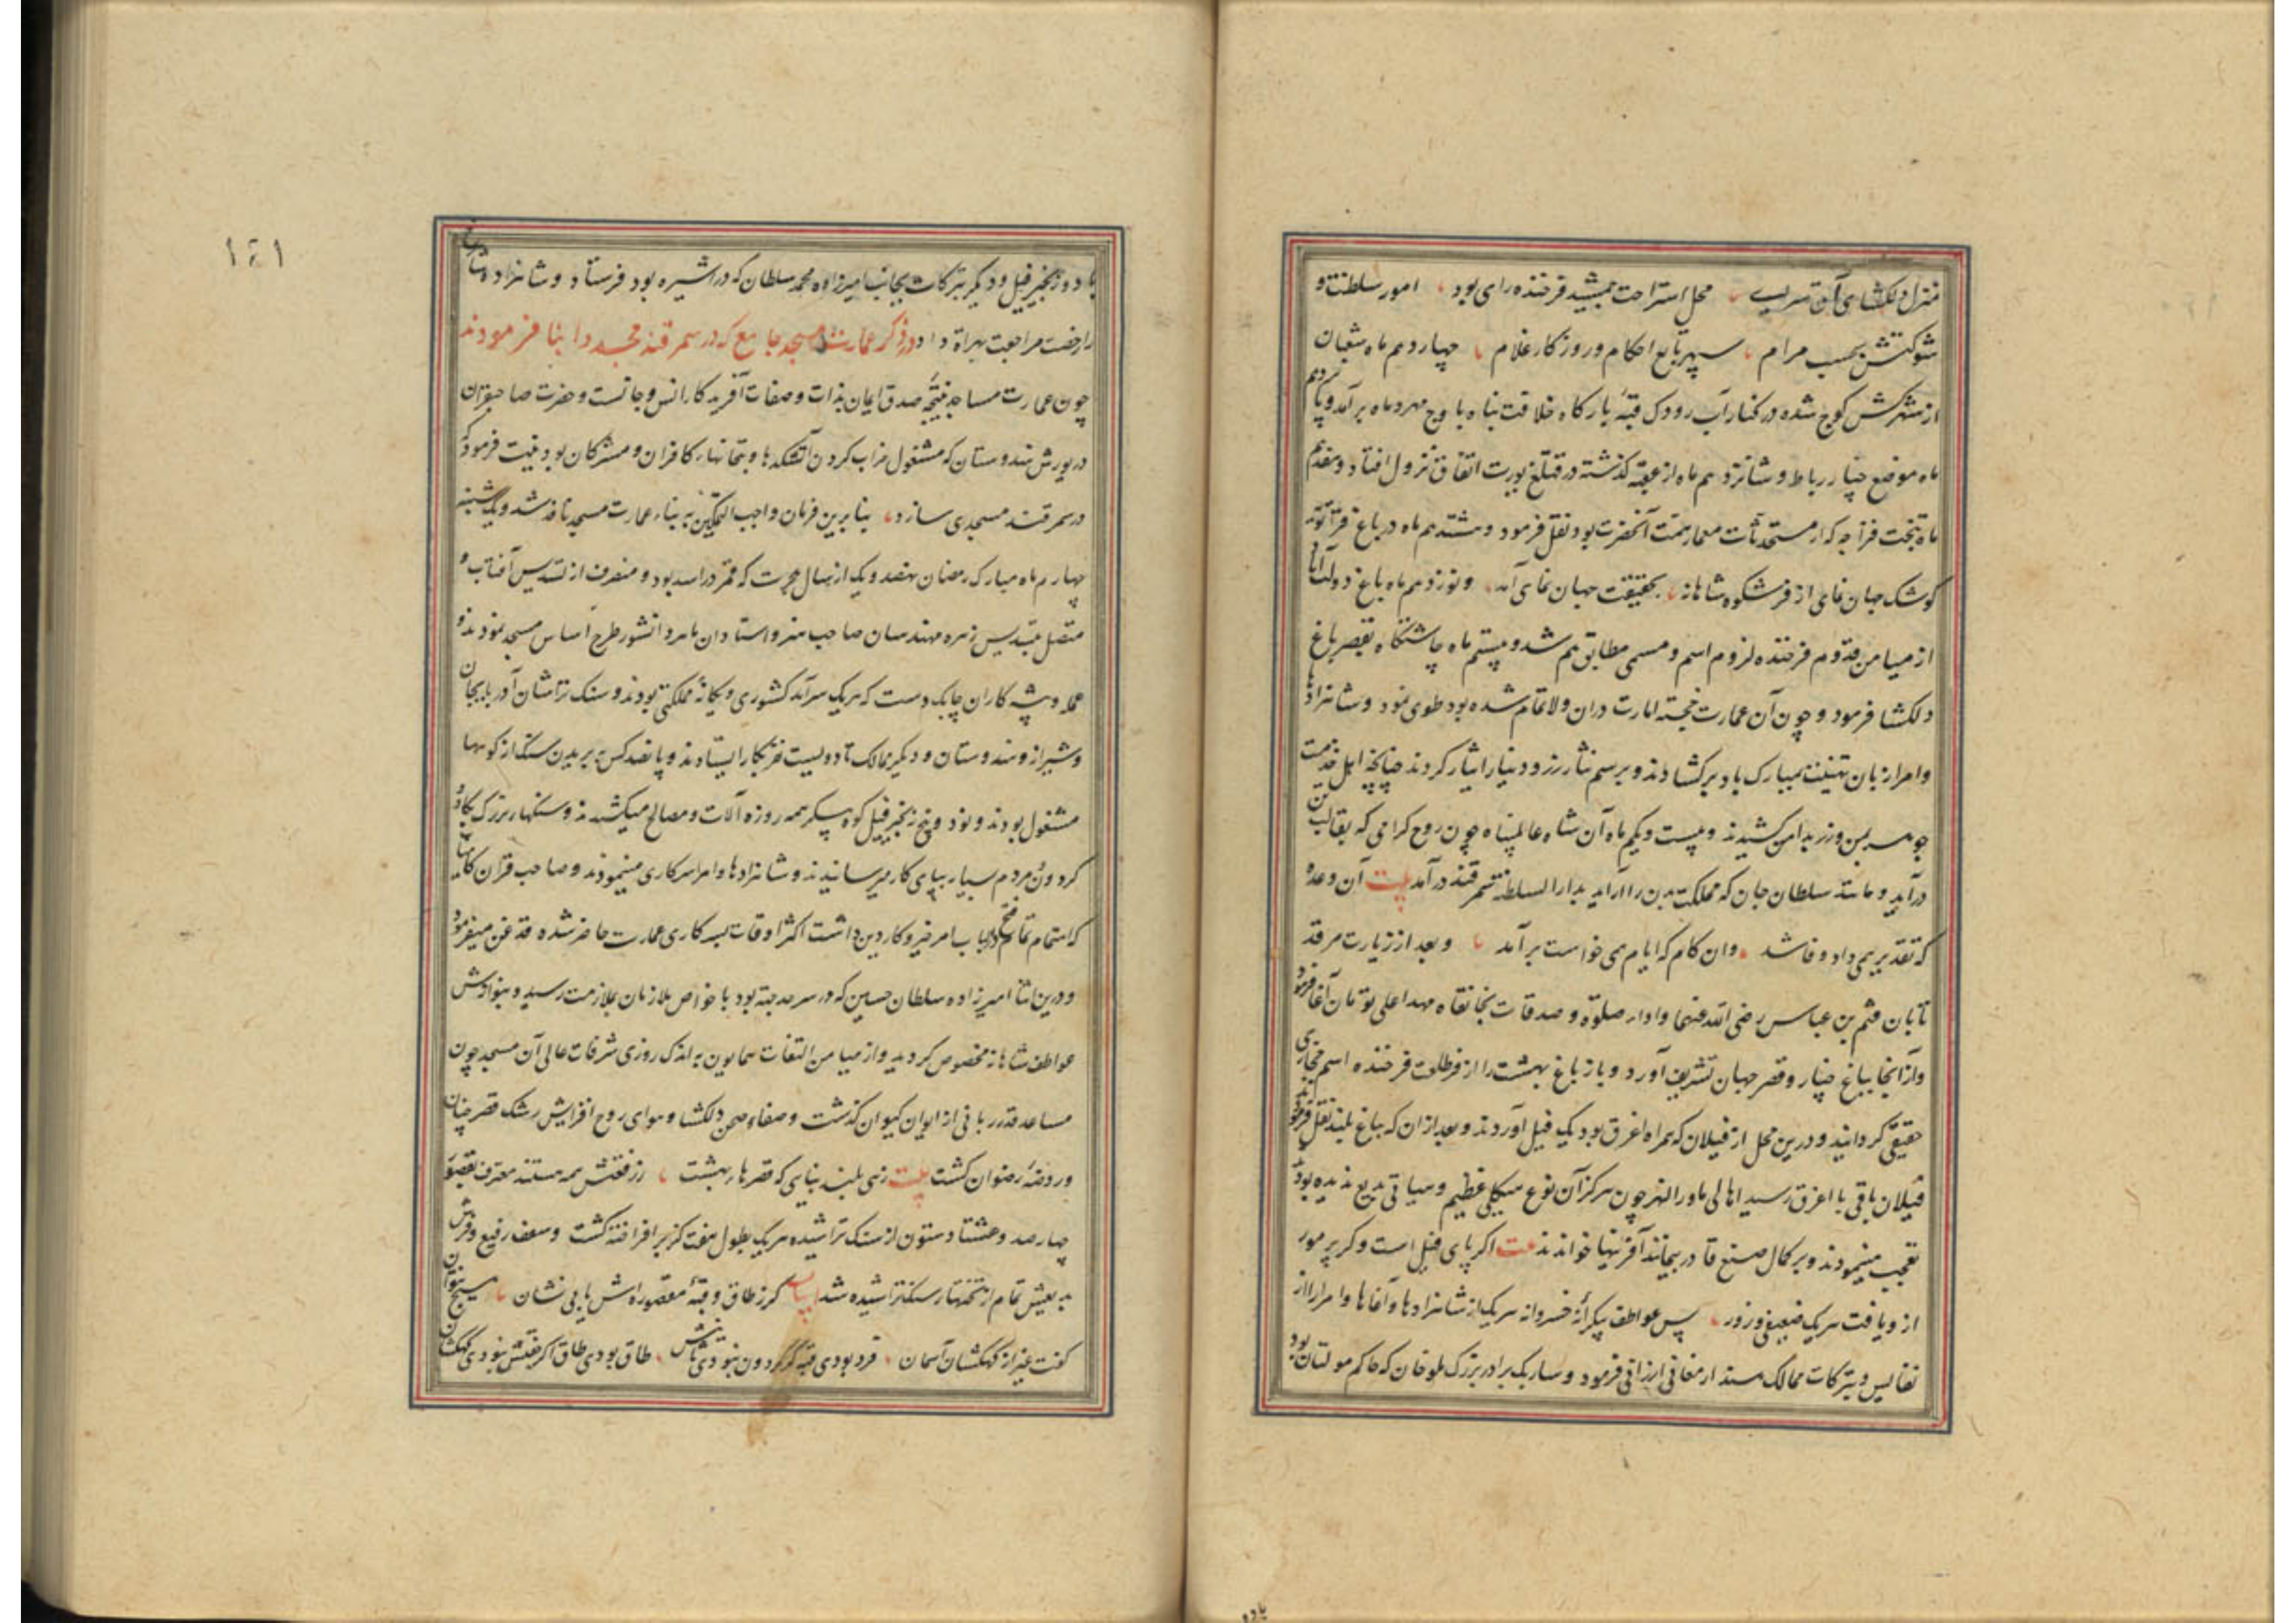 منزل دلکشای آق سرای محل استراحت جمشید فرخنده رای بود امور سلطنت و
شوکتش بحسب مرام سپهر تابع احکام و روزکار غلام چهاردهم ماه شعبان
از شهر کش کوچ شده در کنار آب رودک قبهٔ بارکاه خلافت پناه باوج مهر و ماه برآمد و پانزدهم
ماه موضع چنار رباط و شانزدهم ماه از عقبه کذشته در قتلغ یورت اتفاق نزول افتاد و هفدهم
ماه بتخت قراجه که از مستحدثات معمار همت آنحضرت بود نقل فرمود و هشتدهم ماه در باغ قراتوبه
کوشک جهان نمای از فر شکوه شاهانه بحقیقت جهان نمای آمد و نوزدهم ماه باغ دولت آباد
از میامن قدوم فرخنده لزوم اسم و مسمی مطابق هم شد و بیستم ماه چاشتکاه بقصر باغ
دلکشا فرمود و چون آن عمارت خجسته امارت دران ولا تمام شده بود طوی نمود و شاهزادها
و امرا زبان تهنیت بمبارک باد برکشادند و برسم نثار زر و دینار ایثار کردند چنانچه اهل خدمت
جوهر بمن و زر بدامن کشیدند و بیست و یکم ماه آن شاه عالم پناه چون روح کرامی که بقالب تن
درآید و مانند سلطان جان که مملکت بدن را آراید بدار السلطنه سمرقند درآمد بیت آن وعده
که تقدیر همی داد وفا شد وان کام که ایام همی خواست برآمد و بعد از زیارت مرقد
تابان قثم بن عباس رضی الله عنهما و ادا صلوة و صدقات بخانقاه مهد اعلی تومان آغا فرمود
و از آنجا بباغ چنار و قصر جهان تشریف آورد و باز باغ بهشت را از فر طلعت فرخنده اسم مجازی
حقیقی کردانید و درین محل از فیلان که همراه اغرق بود یک فیل آوردند و بعد ازان که بباغ بلند نقل فرمودند
فیلان باقی با اغرق رسید اهالی ماورالنهر چون هرکز آن نوع هیکلی عظیم و هیاتی بدیع ندیده بودند
تعجب مینمودند و بر کمال صنع قادر بیمانند آفرینها خواندند بیت اکر پای فیل است و کر پر مور
ازو یافت هریک ضعیفی و زور پس عواطف بیکرانه خسروانه هریک از شاهزادها و آغاها و امرا را از
نفایس و تبرکات ممالک هند ارمغانی ارزانی فرمود و سارنک برادر بزرک ملوخان که حاکم مولتان بود
بادو
۱۴۱
با دو زنجیر فیل و دیکر تبرکات بجانب امیرزاده محمد سلطان که در اشیره بود فرستاد و شاهزاده شاهرخ
را رخصت مراجعت بهراة داد ذکر عمارت مسجد جامع که در سمرقند مجددا بنا فرمودند
چون عمارت مساجد نتیجه صدق ایمان بذات و صفات آفریدکار انس و جانست و حضرت صاحبقران
در یورش هندوستان که مشغول خراب کردن آتشکدها و بتخانها کافران و مشرکان بود نیت فرمود که
در سمرقند مسجدی سازد بنا برین فرمان واجب التمکین به بناء عمارت مسجد نافذ شد و یکشنبه
چهارم ماه مبارک رمضان هفصد و یک از سال هجرت که قمر در اسد بود و منصرف از تسدیس آفتاب و
متصل بتسدیس زهره مهندسان صاحب هنر و استادان ماهر دانشور طرح اساس مسجد نمودند و
عمله و پیشه کاران چابک دست که هریک سرآمد کشوری و یکانهٔ مملکتی بودند و سنک تراشان آذربایجان
و شیراز و هندوستان و دیکر ممالک تا دویست نفر بکار ایستادند و پانصد کس به بریدن سنک از کوهها
مشغول بودند و نود و پنج زنجیر فیل کوه پیکر همه روزه آلات و مصالح میکشیدند و سنکهاء بزرک بکاو و
کردون و مردم بسیار بپای کار میرسانیدند و شاهزادها و امرا سرکاری مینمودند و صاحب قران کامیاب
که اهتمام تمام در باب امر خیر و کار دین داشت اکثر اوقات بسرکاری عمارت حاضر شده قدغن میفرمود
و درین اثنا امیرزاده سلطان حسین که در سرحد جته بود با خواص ملازمان بملازمت رسید و بنوازش
عواطف شاهانه مخصوص کردید و از میامن التفات همایون به اندک روزی شرفات عالی آن مسجد چون
مساعد قدر ربانی از ایوان کیوان کذشت و صفاء صحن دلکشا و هوای روح افزایش رشک قصر جنان
و روضهٔ رضوان کشت بیت زهی بلند بنایی که قصرهاء بهشت ز رفعتش همه هستند معترف بقصور
چهارصد و هشتاد ستون از سنک تراشیده هریک بطول هفت کز برافراخته کشت و سقف رفیع و فرش
بدیعش تمام از تختهاء سنک تراشیده شد ابیات کر ز طاق و قبهٔ مقصوره اش یابی نشان هیچ نتوان
کفت غیر از کهکشان آسمان فرد بودی قبه کر کردون نبودی ثانیش طاق بودی طاق اکر جفتش نبودی کهکشان